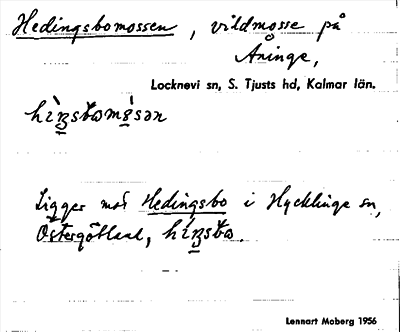 Hedingsbomossen, vildmosse på
Åninge,
Locknevi sn, S. Tjusts hd, Kalmar län.
Ligger mot Hedingsbo i Hycklinge sn,
Östergötland,
Lennart Moberg 1956